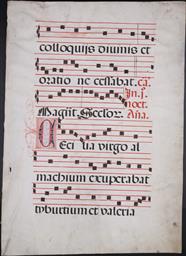 colloquijs diuinis et
oratio ne cessabat. ca.
In. j.º
noct.
Magnīt. Seclor. Aña.
Ceci lia virgo al
machium exuperabat
tyburtium et valeria